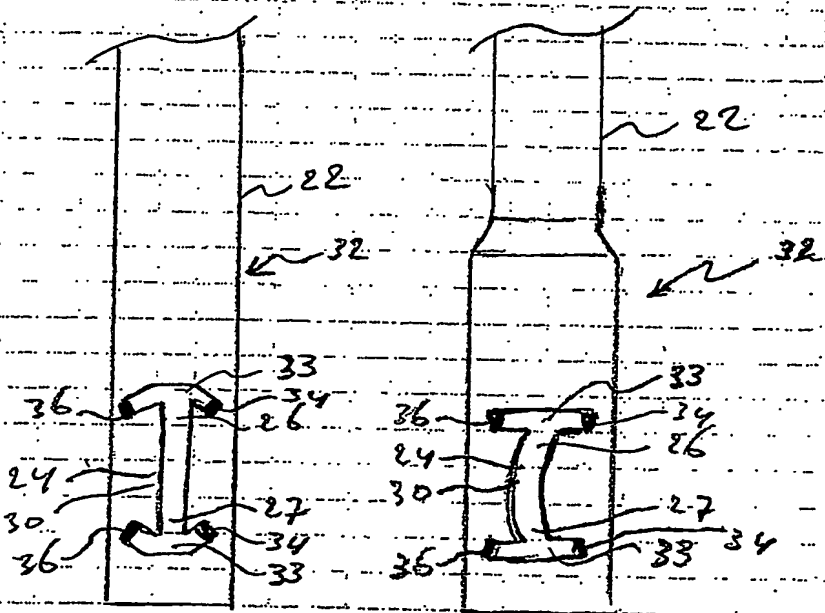 22
32
33
34
36
26
24
30
27
36
34
33
22
32
33
34
36
26
24
30
27
36
34
33